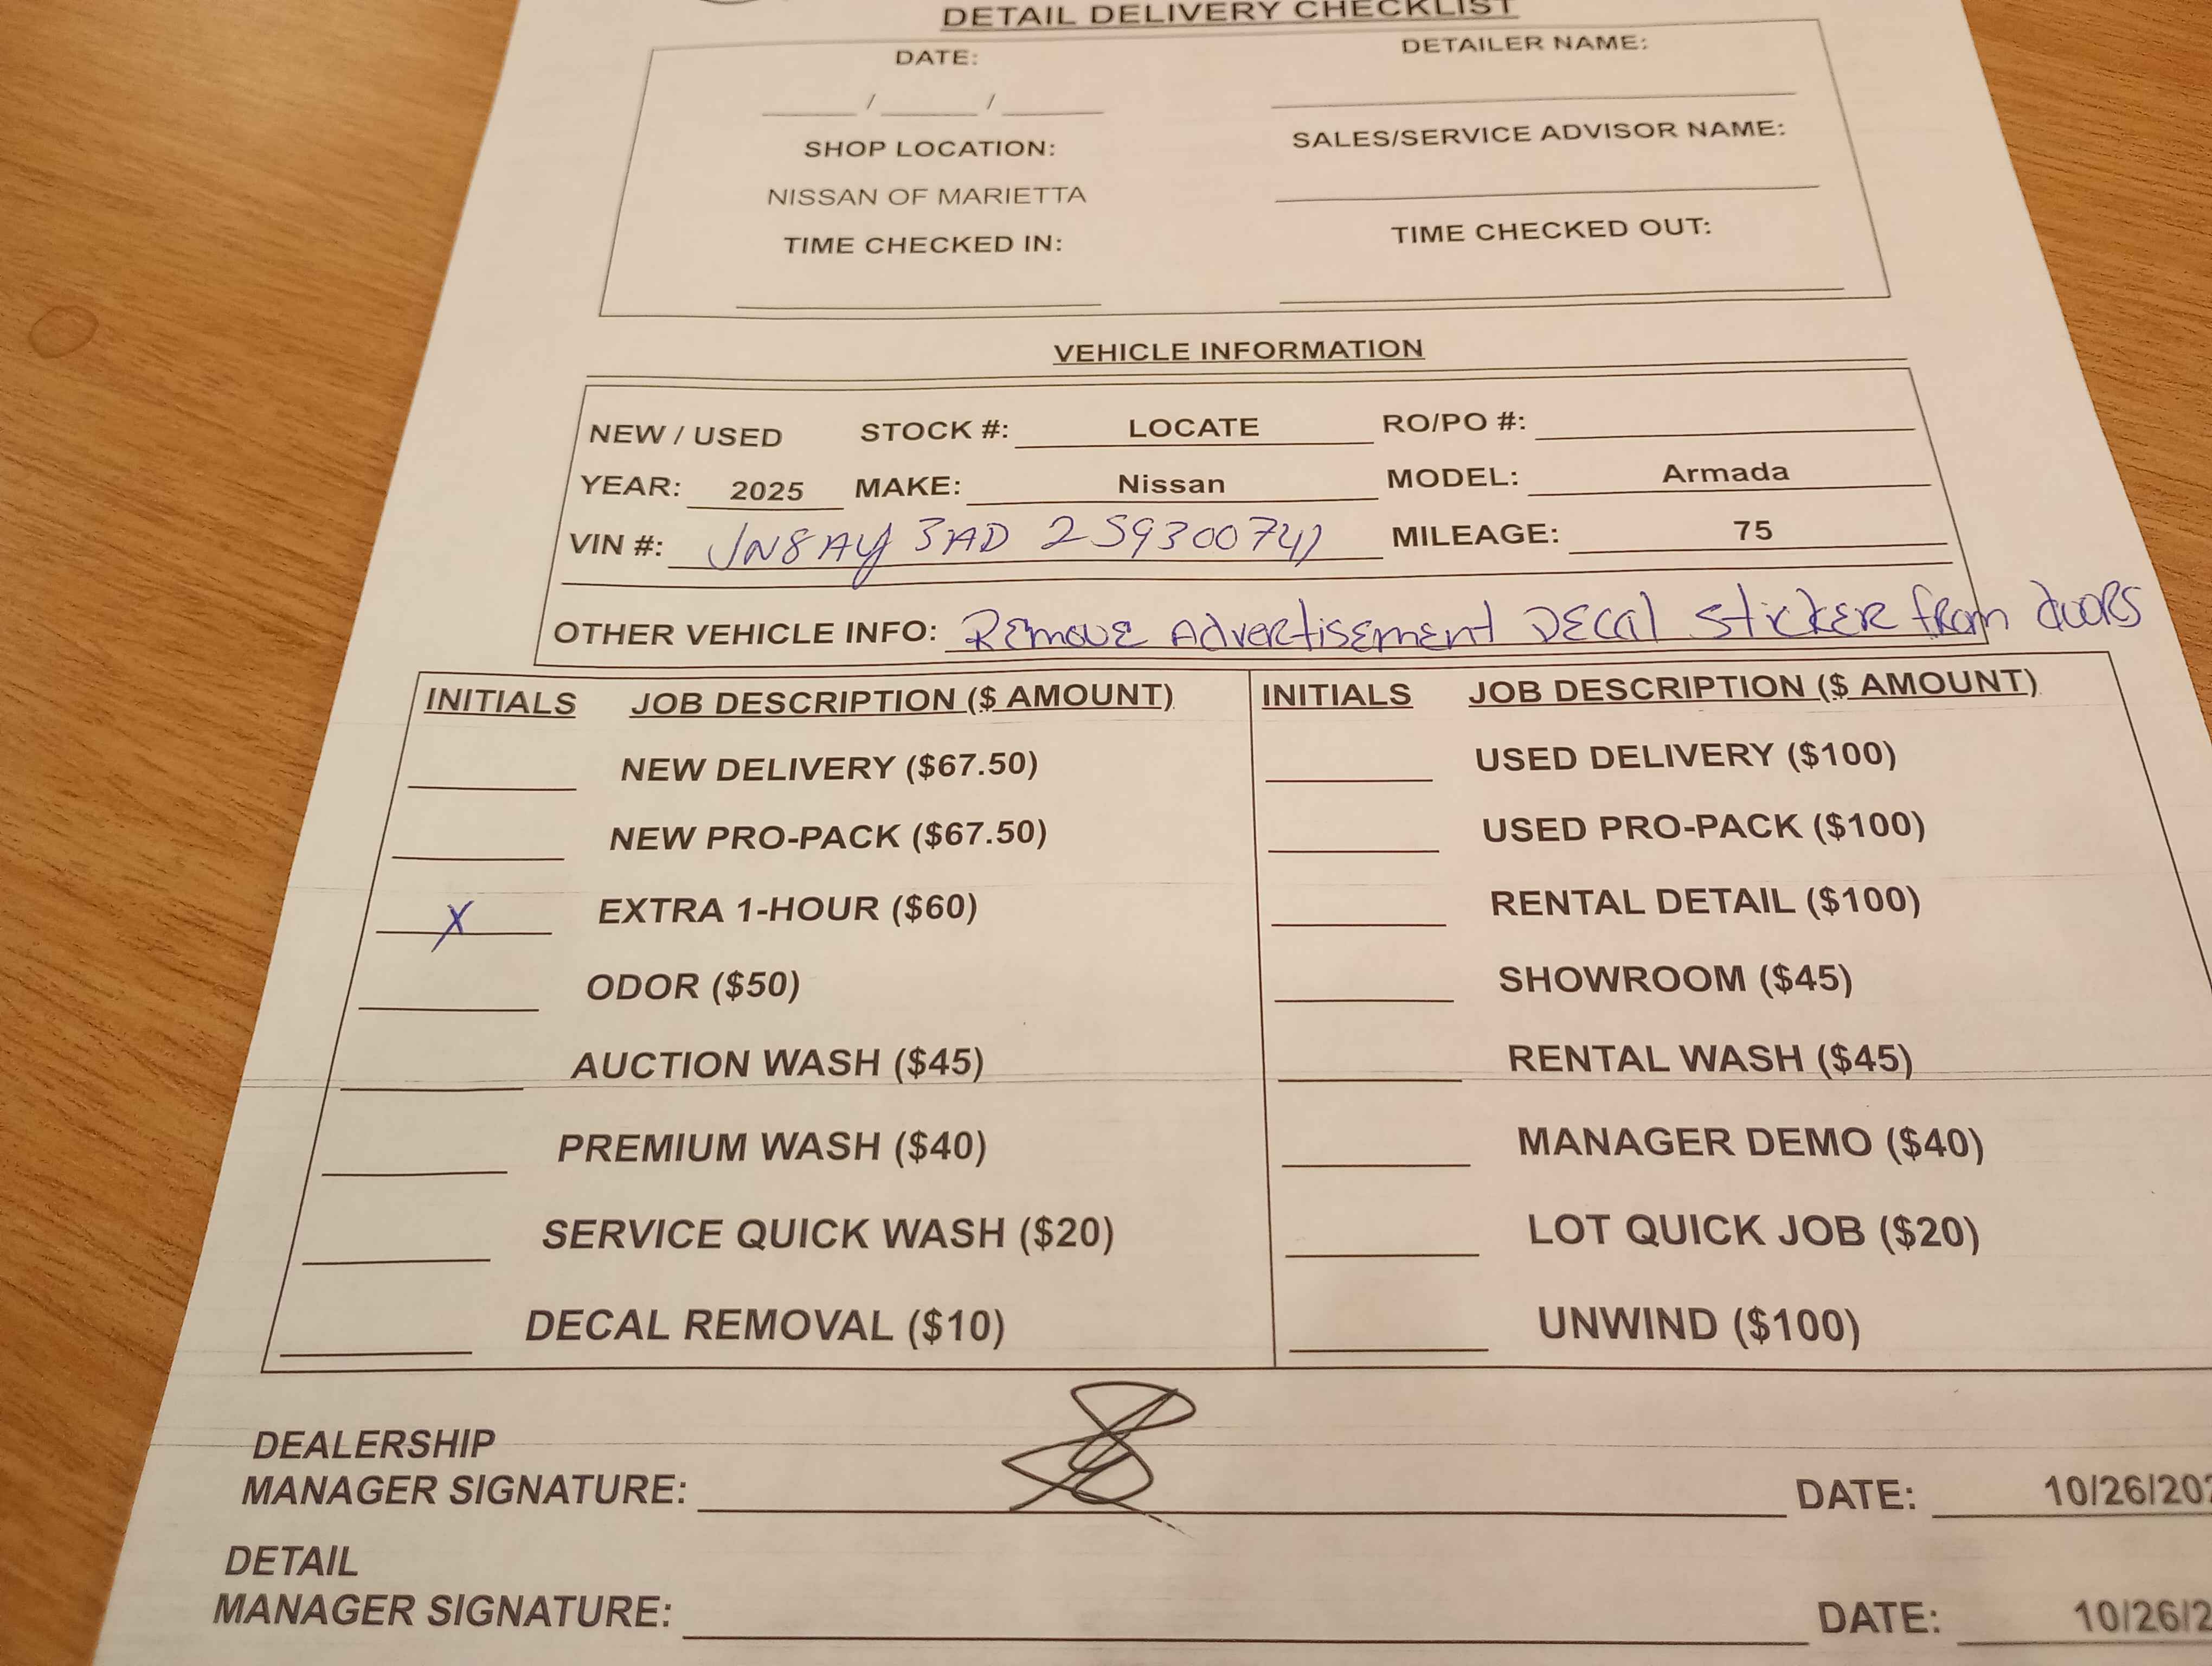 DETAIL DELIVERY CHECKLIST
DATE: DETAILER NAME:
____/____/____
SHOP LOCATION: SALES/SERVICE ADVISOR NAME:
NISSAN OF MARIETTA
TIME CHECKED IN: TIME CHECKED OUT:
VEHICLE INFORMATION
NEW / USED STOCK #: LOCATE RO/PO #:
YEAR: 2025 MAKE: Nissan MODEL: Armada
VIN #: JN8AY 3AD 2 S9300741 MILEAGE: 75
OTHER VEHICLE INFO: Remove Advertisement Decal Sticker from doors
INITIALS JOB DESCRIPTION ($ AMOUNT) INITIALS JOB DESCRIPTION ($ AMOUNT)
NEW DELIVERY ($67.50) USED DELIVERY ($100)
NEW PRO-PACK ($67.50) USED PRO-PACK ($100)
X EXTRA 1-HOUR ($60) RENTAL DETAIL ($100)
ODOR ($50) SHOWROOM ($45)
AUCTION WASH ($45) RENTAL WASH ($45)
PREMIUM WASH ($40) MANAGER DEMO ($40)
SERVICE QUICK WASH ($20) LOT QUICK JOB ($20)
DECAL REMOVAL ($10) UNWIND ($100)
DEALERSHIP
MANAGER SIGNATURE: DATE: 10/26/202
DETAIL
MANAGER SIGNATURE: DATE: 10/26/2